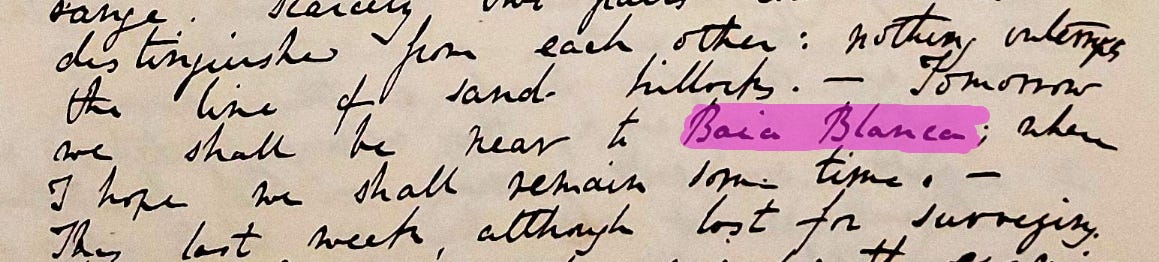 range. Scarcely two parts can be
distinguished from each other: nothing interrupts
the line of sand-hillocks. — Tomorrow
we shall be near to Baia Blanca; where
I hope we shall remain some time. —
This last week, although lost for surveying,